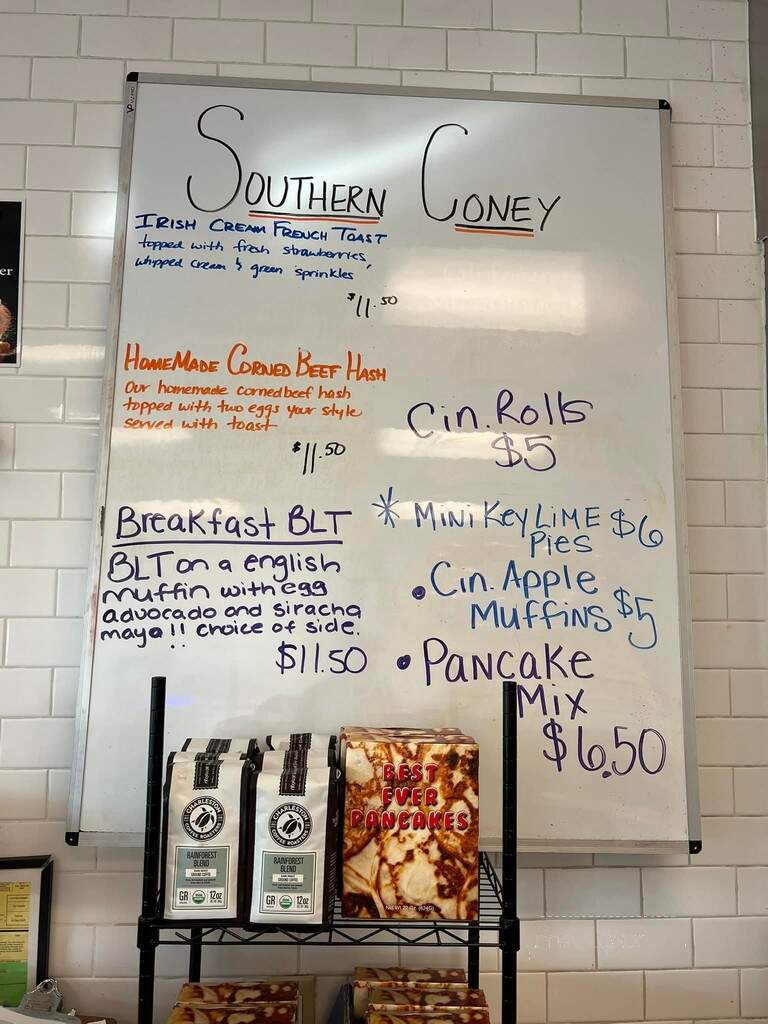 SOUTHERN CONEY
IRISH CREAM FRENCH TOAST
topped with fresh strawberries,
whipped cream & green sprinkles
$11.50
HOMEMADE CORNED BEEF HASH
Our homemade cornedbeef hash
topped with two eggs your style
served with toast
$11.50
Breakfast BLT
BLT on a english
muffin with egg
advocado and siracha
mayo!! choice of side.
$11.50
Cin. Rolls
$5
* MINI KEY LIME $6
Pies
• Cin. Apple
Muffins $5
• PANCAKE
MIX
$6.50
CHARLESTON
COFFEE ROASTERS
RAINFOREST
BLEND
DARK ROAST
GROUND COFFEE
GR
12oz
CHARLESTON
COFFEE ROASTERS
RAINFOREST
BLEND
DARK ROAST
GROUND COFFEE
GR
12oz
BEST
EVER
PANCAKES
er